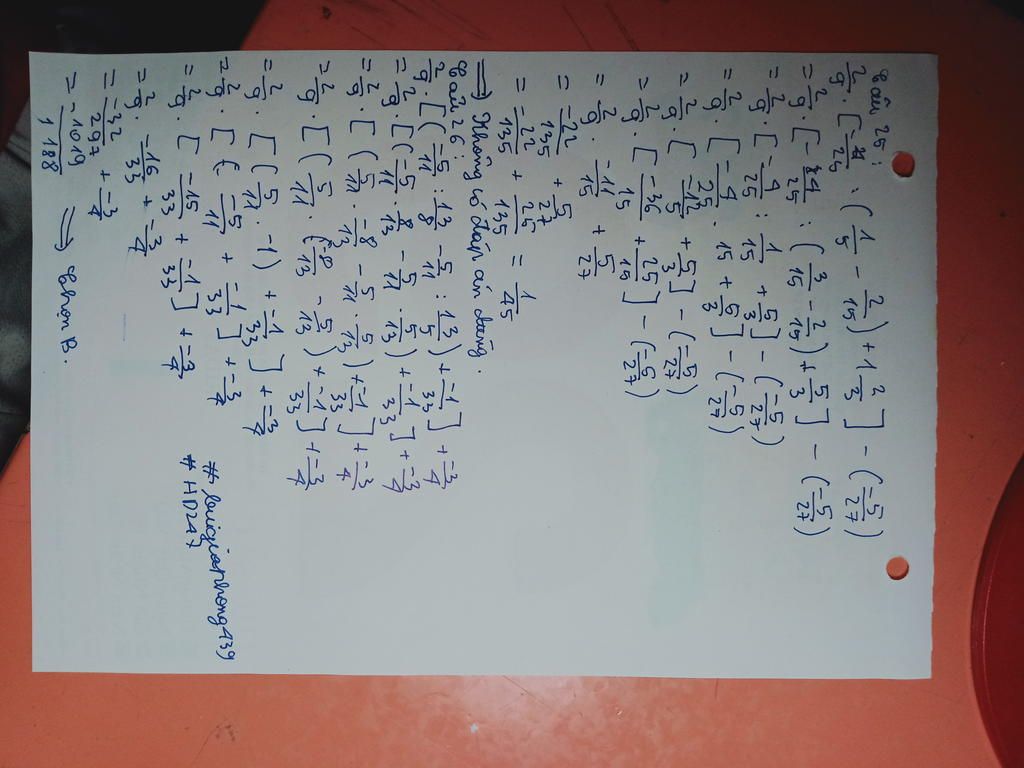 Câu 25:
2/9 . [-4/25 : (1/5 - 2/15) + 1 2/3] - (-5/27)
= 2/9 . [-4/25 : (3/15 - 2/15) + 5/3] - (-5/27)
= 2/9 . [-4/25 : 1/15 + 5/3] - (-5/27)
= 2/9 . [-4/25 . 15 + 5/3] - (-5/27)
= 2/9 . [-12/5 + 5/3] - (-5/27)
= 2/9 . [-36/15 + 25/15] - (-5/27)
= 2/9 . -11/15 + 5/27
= -22/135 + 5/27
= -22/135 + 25/135 = 1/45
=> Không có đáp án đúng.
Câu 26:
2/9 . [(-5/11 : 13/8 - 5/11 : 13/5) + -1/33] + -3/4
= 2/9 . [(-5/11 . 8/13 - 5/11 . 5/13) + -1/33] + -3/4
= 2/9 . [(5/11 . -8/13 - 5/11 . 5/13) + -1/33] + -3/4
= 2/9 . [(5/11 . (-8/13 - 5/13) + -1/33] + -3/4
= 2/9 . [(5/11 . -1) + -1/33] + -3/4
= 2/9 . [(-5/11 + -1/33] + -3/4
= 2/9 . [-15/33 + -1/33] + -3/4
= 2/9 . -16/33 + -3/4
= -32/297 + -3/4
= -1019/1188 => Chọn B.
#buigiaphong439
#HD247